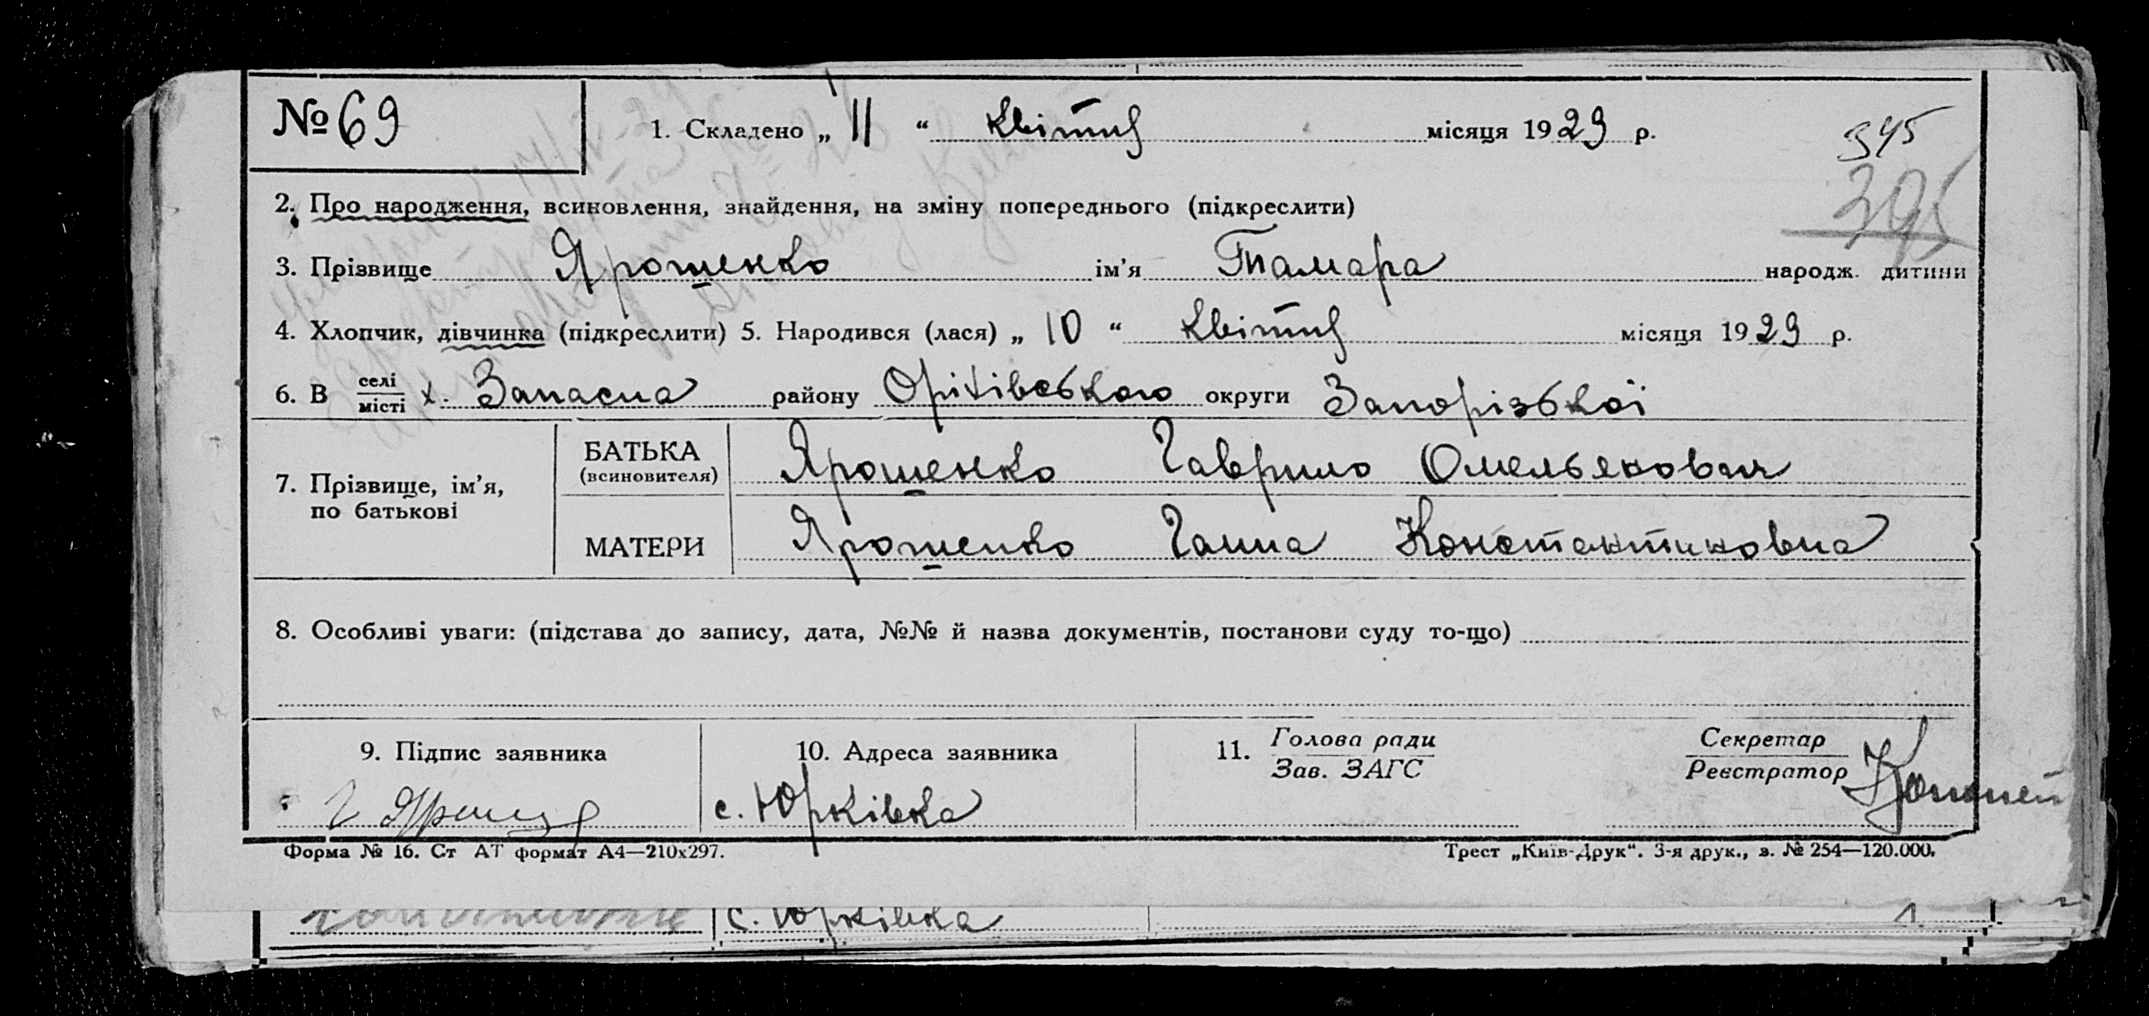 № 69
1. Складено „ 11 “ квітня місяця 1929 р.
345
395
2. Про народження, всиновлення, знайдення, на зміну попереднього (підкреслити)
3. Прізвище Ярошенко ім'я Тамара народж. дитини
4. Хлопчик, дівчинка (підкреслити) 5. Народився (лася) „ 10 “ квітня місяця 1929 р.
6. В селі/місті х. Запасна району Оріхівського округи Запорізької
7. Прізвище, ім'я, по батькові
БАТЬКА (всиновителя) Ярошенко Гаврило Омельянович
МАТЕРИ Ярошенко Ганна Константиновна
8. Особливі уваги: (підстава до запису, дата, №№ й назва документів, постанови суду то-що)
9. Підпис заявника 10. Адреса заявника 11. Голова ради / Зав. ЗАГС Секретар / Реєстратор
Г с. Юрківка
Форма № 16. Ст АТ формат А4—210х297. Трест „Київ-Друк“. 3-я друк., з. № 254—120.000.
с. Юрківка